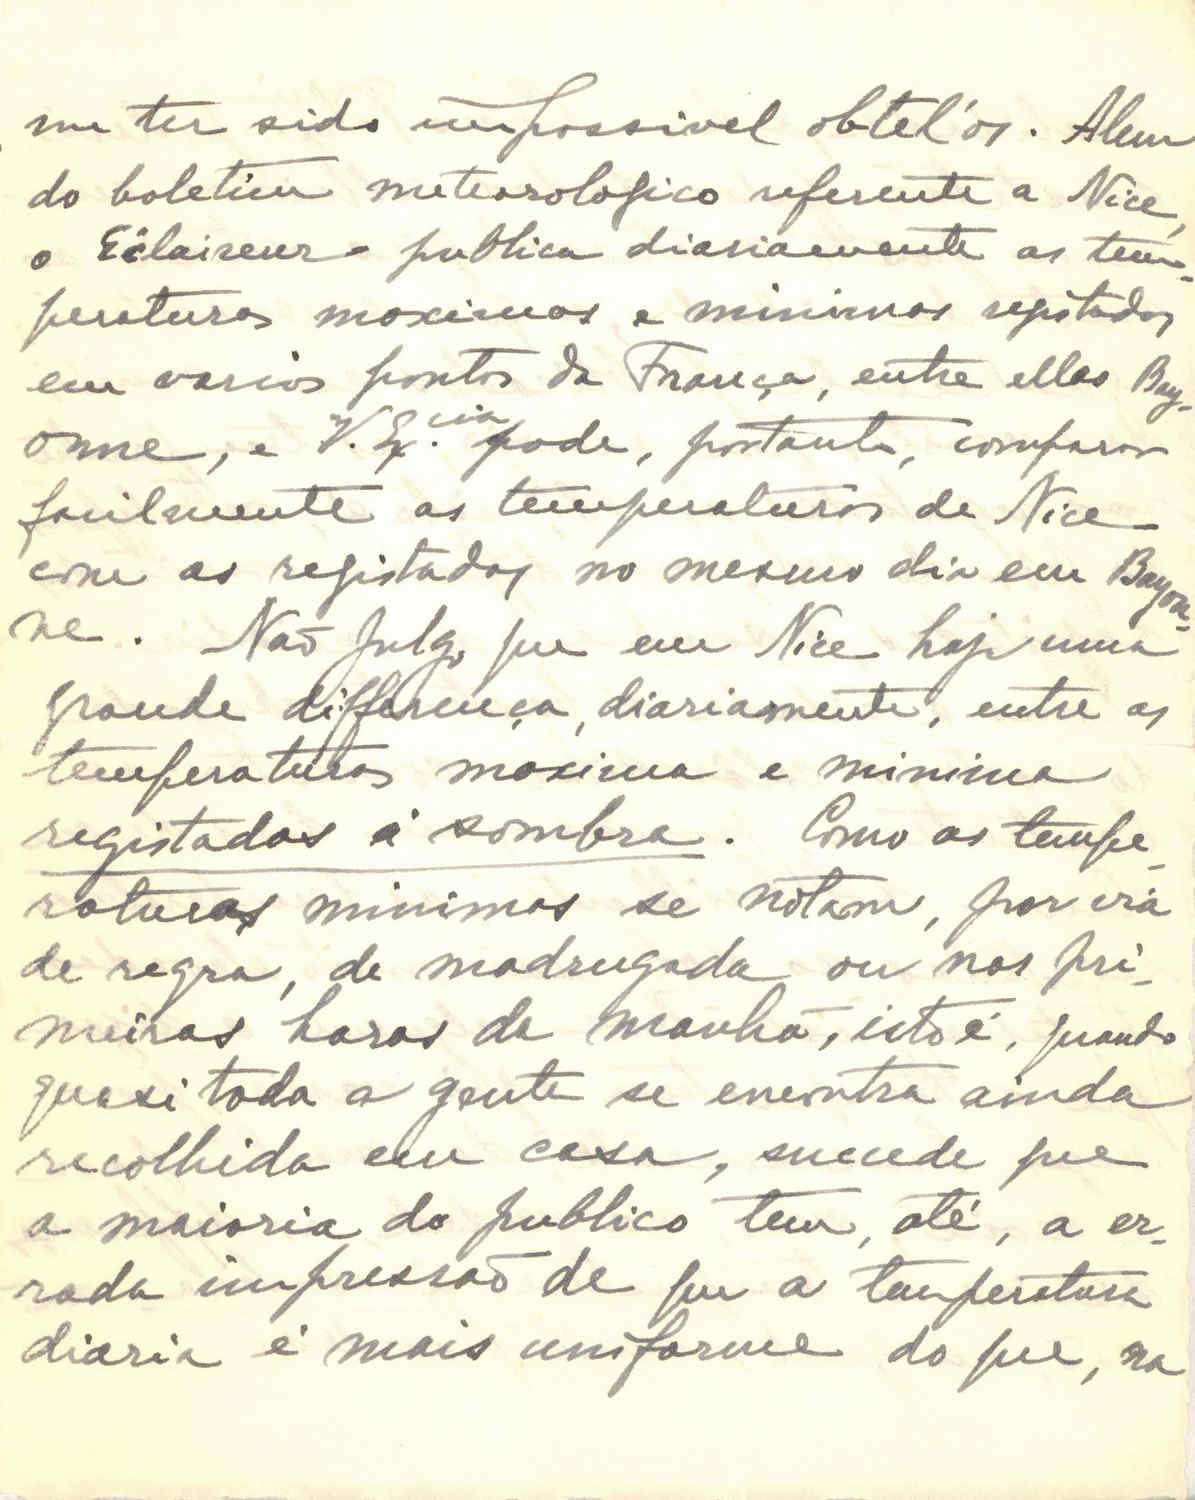 me ter sido impossivel obtel'os. Alem
do boletim meteorologico referente a Nice,
o Eclaireur publica diariamente as tem-
peraturas maximas e minimas registadas
em varios pontos da França, entre ellas Bay-
onne, e V. Ex.cia pode, portanto, comparar
facilmente as temperaturas de Nice
com as registadas no mesmo dia em Bayon-
ne. Não julgo que em Nice haja uma
grande differença, diariamente, entre as
temperaturas maxima e minima
registadas á sombra. Como as tempe-
raturas minimas se nótam, por via
de regra, de madrugada ou nas pri-
meiras horas da manhã, isto é, quando
quasi toda a gente se encontra ainda
recolhida em casa, succede que
a maioria do publico tem, até, a er-
rada impressão de que a temperatura
diaria é mais uniforme do que, na